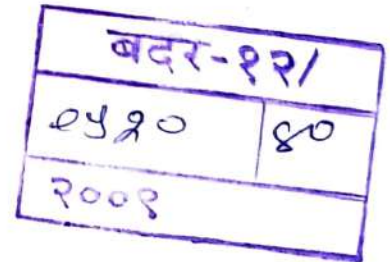 बदर-१२/
८५२० ४०
२००९